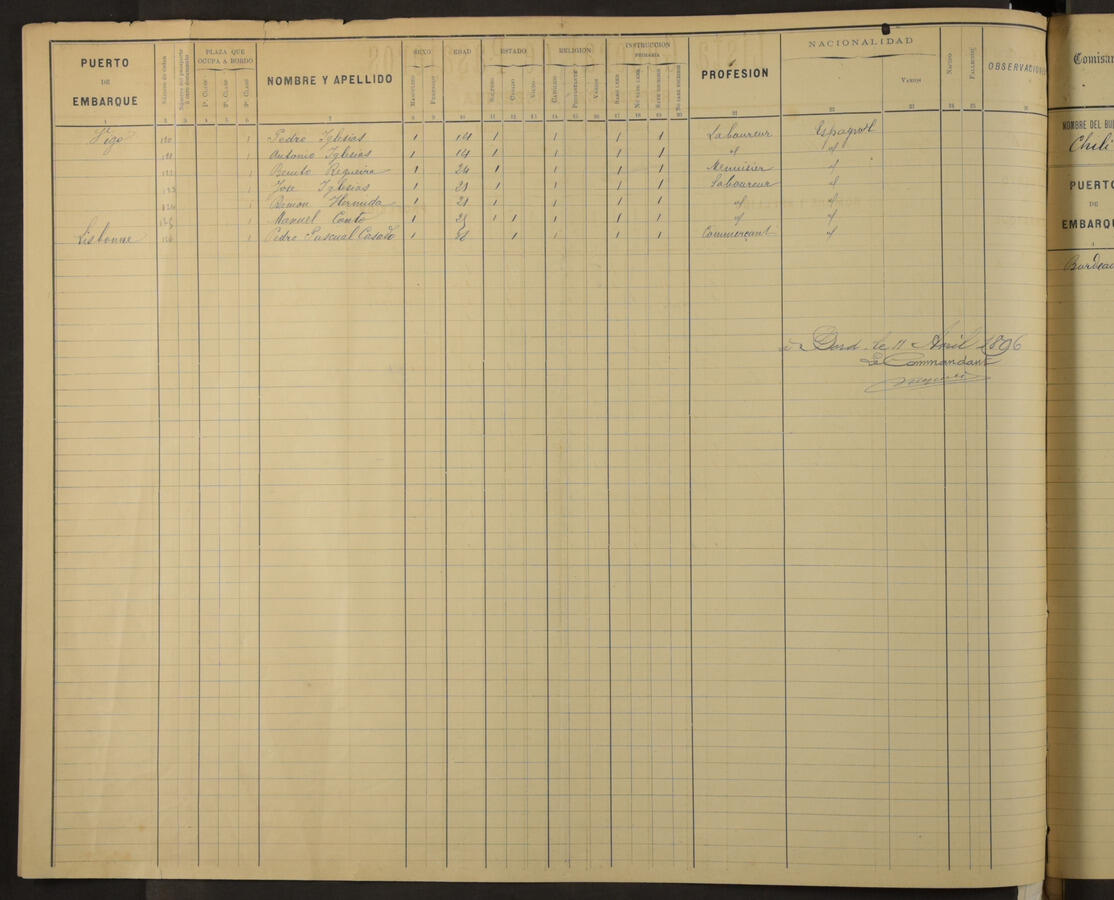 PUERTO DE EMBARQUE
Número de orden
Número del pasaporte ú otro documento
PLAZA QUE OCUPA A BORDO
1ª CLASE 2ª CLASE 3ª CLASE
NOMBRE Y APELLIDO
SEXO
MASCULINO FEMENINO
EDAD
ESTADO
SOLTERO CASADO VIUDO
RELIGION
CATÓLICO PROTESTANTE VARIOS
INSTRUCCION PRIMARIA
SABE LEER NO SABE LEER SABE ESCRIBIR NO SABE ESCRIBIR
PROFESION
NACIONALIDAD
VARIOS
NACIDO
FALLECIDO
OBSERVACIONES
1 2 3 4 5 6 7 8 9 10 11 12 13 14 15 16 17 18 19 20 21 22 23 24 25 26
Vigo 120 1 Pedro Iglesias 1 1 1 1 1 Laboureur Espagnol
121 1 Antonio Iglesias 1 1 1 1 1 " "
122 1 Benito Regueira 1 24 1 1 1 1 Menuisier "
123 1 Jose Iglesias 1 21 1 1 1 1 Laboureur "
124 1 Ramon Hermida 1 21 1 1 1 1 " "
125 1 Manuel Couto 1 25 1 1 1 1 1 " "
Lisbonne 126 1 Pedro Pascual Casado 1 1 1 1 1 Commerçant "
à Bord le 11 Avril 1896
Le Commandant
Comisar
NOMBRE DEL BU
Chili
PUERTO
DE
EMBARQU
1
Bordeau